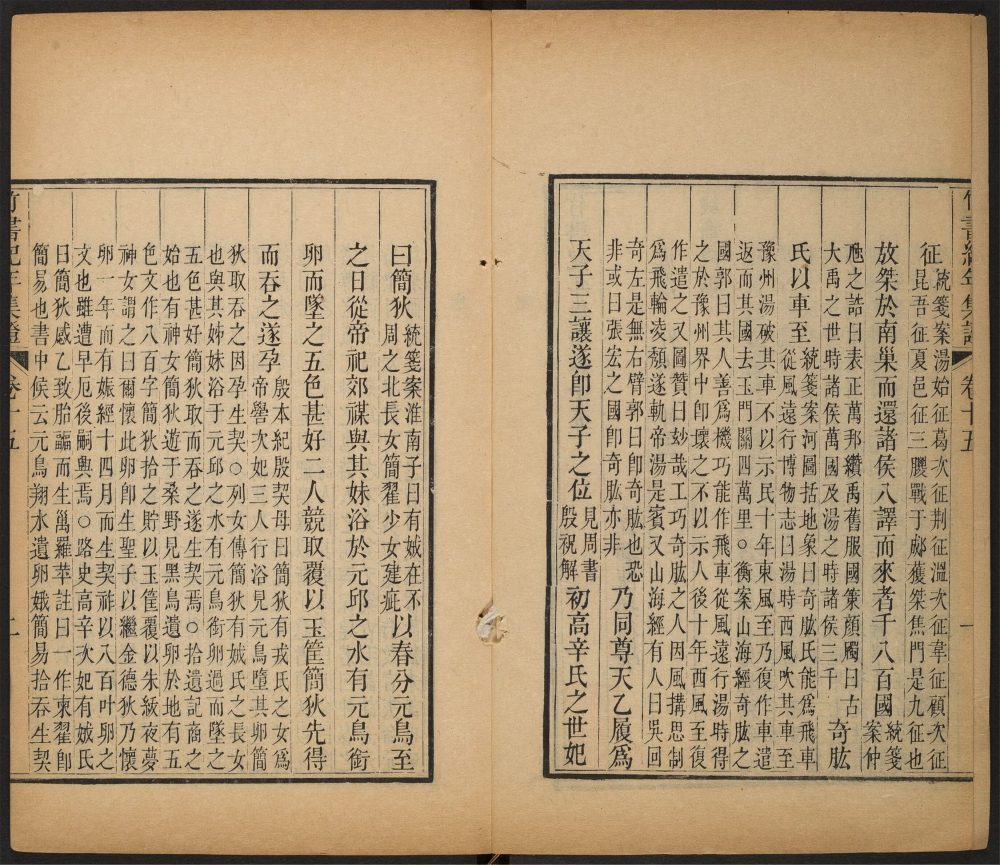 竹書紀年集證 卷十五 一
征 統箋案湯始征葛次征荆征溫次征韋征顧次征
昆吾征夏邑征三朡戰于郕獲桀焦門是九征也
放桀於南巢而還諸侯八譯而來者千八百國 統箋
案仲
虺之誥曰表正萬邦纘禹舊服國策顏斶曰古
大禹之世時諸侯萬國及湯之時諸侯三千 奇肱
氏以車至 統箋案河圖括地象曰奇肱氏能爲飛車
從風遠行博物志曰湯時西風吹其車至
豫州湯破其車不以示民十年東風至乃復作車遣
返而其國去玉門關四萬里○衡案山海經奇肱之
國郭曰其人善爲機巧能作飛車從風遠行湯時得
之於豫州界中卽壞之不以示人後十年西風至復
作遣之又圖贊曰妙哉工巧奇肱之人因風搆思制
爲飛輪凌頽遂軌帝湯是賓又山海經有人曰吳回
奇左是無右臂郭曰卽奇肱也恐
非或曰張宏之國卽奇肱亦非 乃同尊天乙履爲
天子三讓遂卽天子之位 見周書
殷祝解 初高辛氏之世妃
曰簡狄 統箋案淮南子曰有娀在不
周之北長女簡翟少女建疵 以春分元鳥至
之日從帝祀郊禖與其妹浴於元邱之水有元鳥銜
卵而墜之五色甚好二人競取覆以玉筐簡狄先得
而吞之遂孕 殷本紀殷契母曰簡狄有戎氏之女爲
帝嚳次妃三人行浴見元鳥墮其卵簡
狄取吞之因孕生契○列女傳簡狄有娀氏之長女
也與其姊妹浴于元邱之水有元鳥銜卵過而墜之
五色甚好簡狄取而吞之遂生契焉○拾遺記商之
始也有神女簡狄遊于桑野見黑鳥遺卵於地有五
色文作八百字簡狄拾之貯以玉筐覆以朱紱夜夢
神女謂之曰爾懷此卵卽生聖子以繼金德狄乃懷
卵一年而有娠經十四月而生契祚以八百叶卵之
文也雖遭旱厄後嗣興焉○路史高辛次妃有娀氏
曰簡狄感乙致胎疈而生卨羅苹註曰一作柬翟卽
簡易也書中候云元鳥翔水遺卵娥簡易拾吞生契
竹書紀年集證 卷十五 二